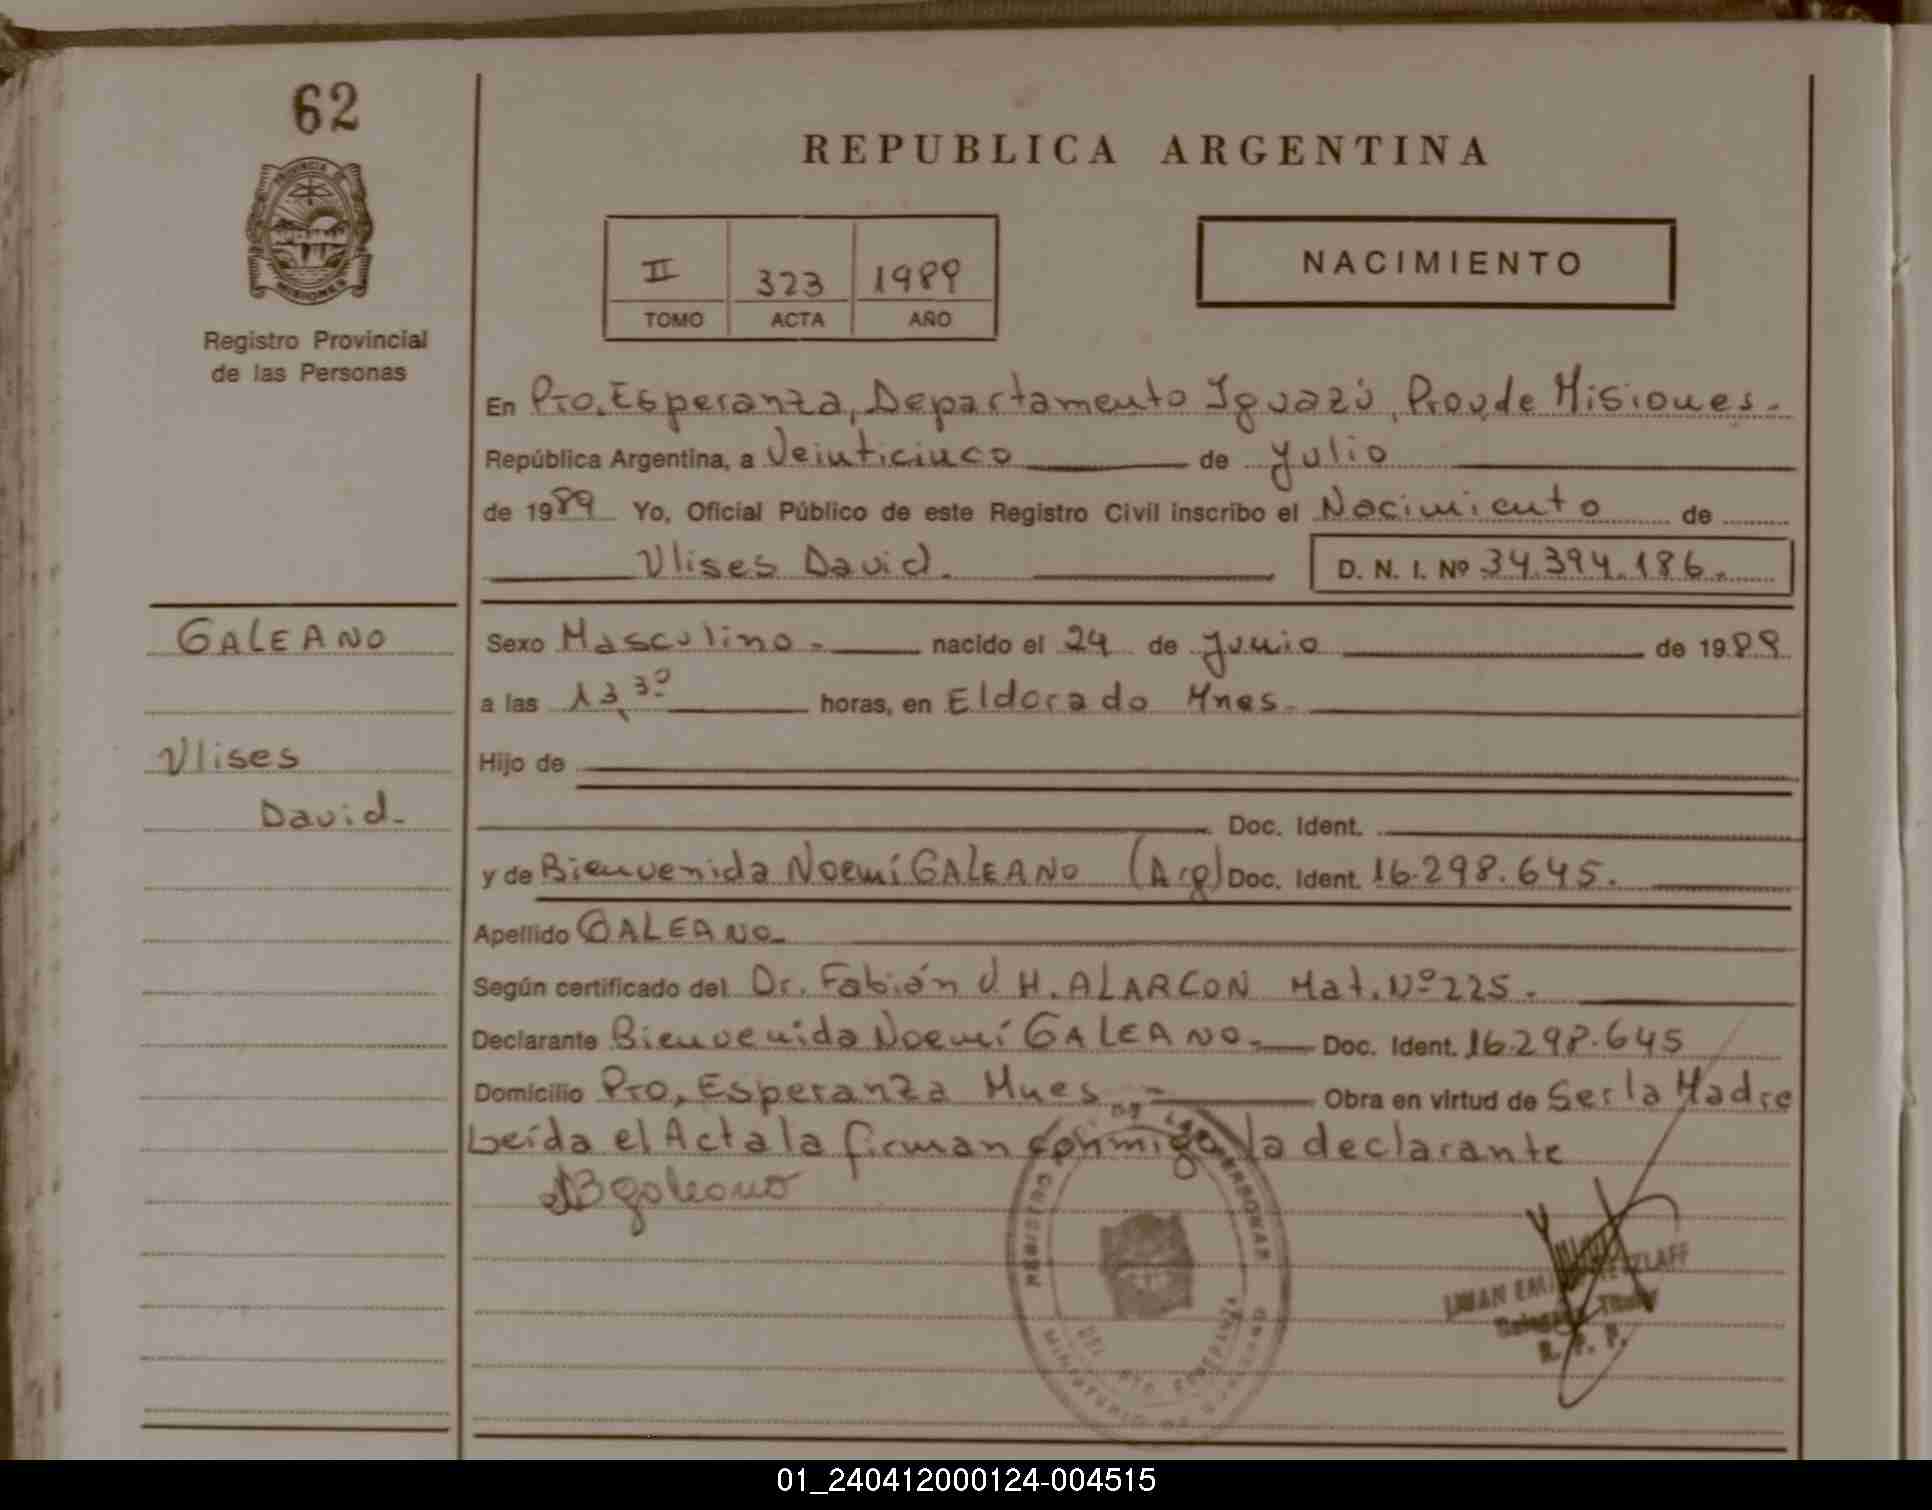 62
REPUBLICA ARGENTINA
PROVINCIA DE
MISIONES
Registro Provincial
de las Personas
II 323 1989
TOMO ACTA AÑO
NACIMIENTO
En Pto. Esperanza, Departamento Iguazú, Prov, de Misiones.
República Argentina, a Veinticinco de Julio
de 1989 Yo, Oficial Público de este Registro Civil inscribo el Nacimiento de
Ulises David. D. N. I. Nº 34.394.186.
GALEANO
Ulises
David.
Sexo Masculino. nacido el 24 de Junio de 1989
a las 13,30 horas, en Eldorado Mnes.
Hijo de
Doc. Ident.
y de Bienvenida Noemí GALEANO (Arg) Doc. Ident. 16.298.645.
Apellido GALEANO
Según certificado del Dr. Fabián J. H. ALARCON Mat. Nº 225.
Declarante Bienvenida Noemí GALEANO. Doc. Ident. 16.298.645
Domicilio Pto, Esperanza Mnes Obra en virtud de Ser la Madre
Leída el Acta la firman conmigo la declarante
Galeano
REGISTRO DE LAS PERSONAS
DEL PTO. ESPERANZA
MINISTERIO DE GOBIERNO
Titular
R. P. P.
01_240412000124-004515